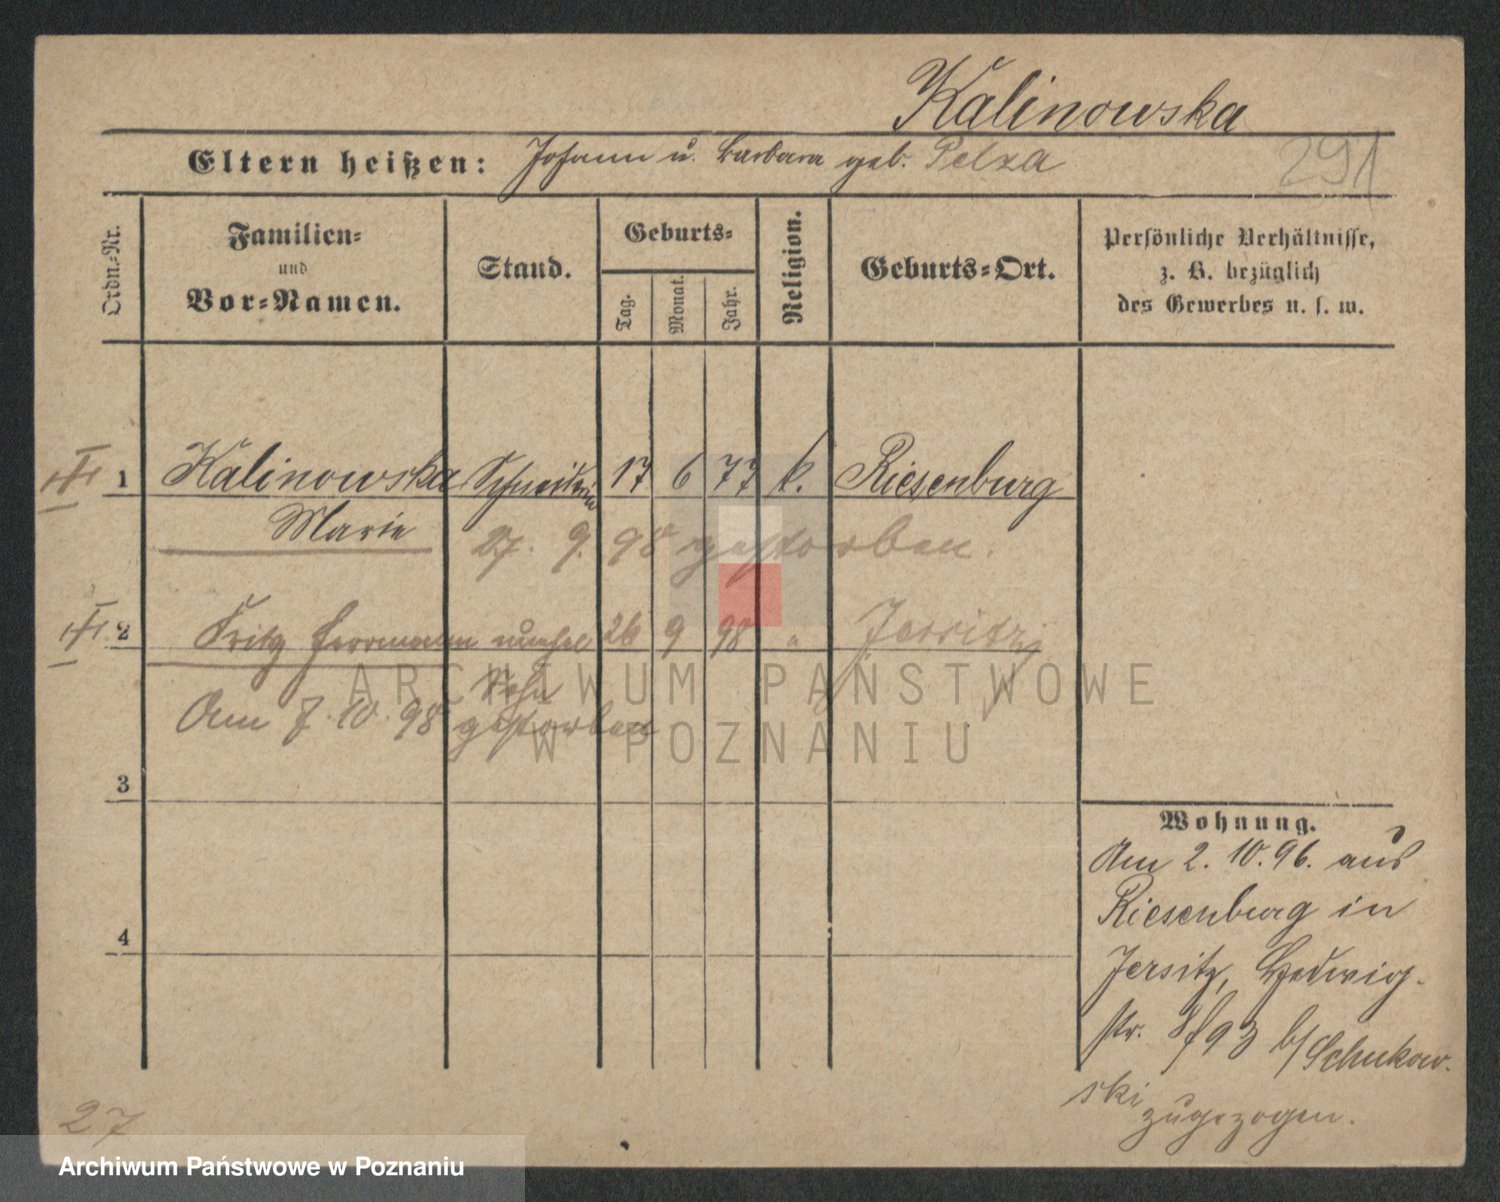 Kalinowska
Eltern heißen: Johann u. Barbara geb. Pelza
291
Ordn.-Nr.
Familien-
und
Vor-Namen.
Stand.
Geburts-
Tag.
Monat.
Jahr.
Religion.
Geburts-Ort.
Persönliche Verhältnisse,
z. B. bezüglich
des Gewerbes u. s. w.
1 Kalinowska Schneiderin 17 6 77 k. Riesenburg
Marie
27. 9. 98 gestorben.
2 Fritz Herrmann unehel 26 9 98 " Jersitz
Sohn
Am 7. 10. 98 gestorben
3
4
Wohnung.
Am 2. 10. 96. aus
Riesenburg in
Jersitz, Hedwig-
str. 8/93 b/Schukow-
ski zugezogen.
27
ARCHIWUM PAŃSTWOWE
W POZNANIU
Archiwum Państwowe w Poznaniu